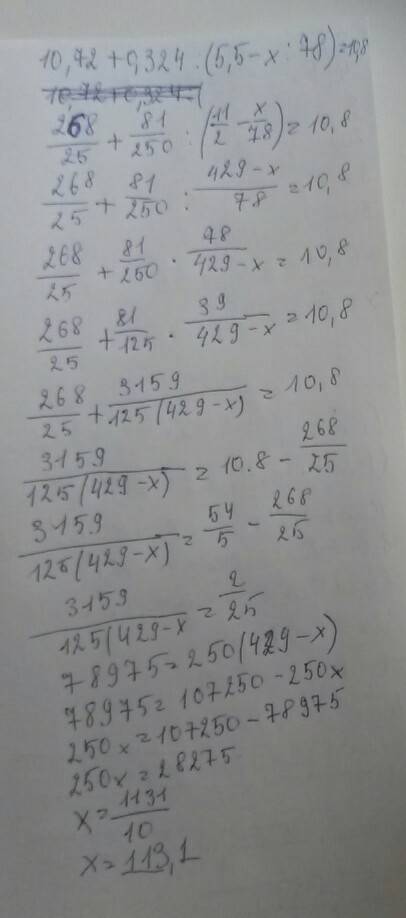 10,72+0,324:(5,5-x:78)=10,8
10,72+0,324:(
268/25 + 81/250 : (11/2 - x/78) = 10,8
268/25 + 81/250 : (429-x)/78 = 10,8
268/25 + 81/250 · 78/(429-x) = 10,8
268/25 + 81/125 · 39/(429-x) = 10,8
268/25 + 3159/(125(429-x)) = 10,8
3159/(125(429-x)) = 10.8 - 268/25
3159/(125(429-x)) = 54/5 - 268/25
3159/(125(429-x) = 2/25
78975=250(429-x)
78975=107250-250x
250x=107250-78975
250x=28275
x=1131/10
x=113,1